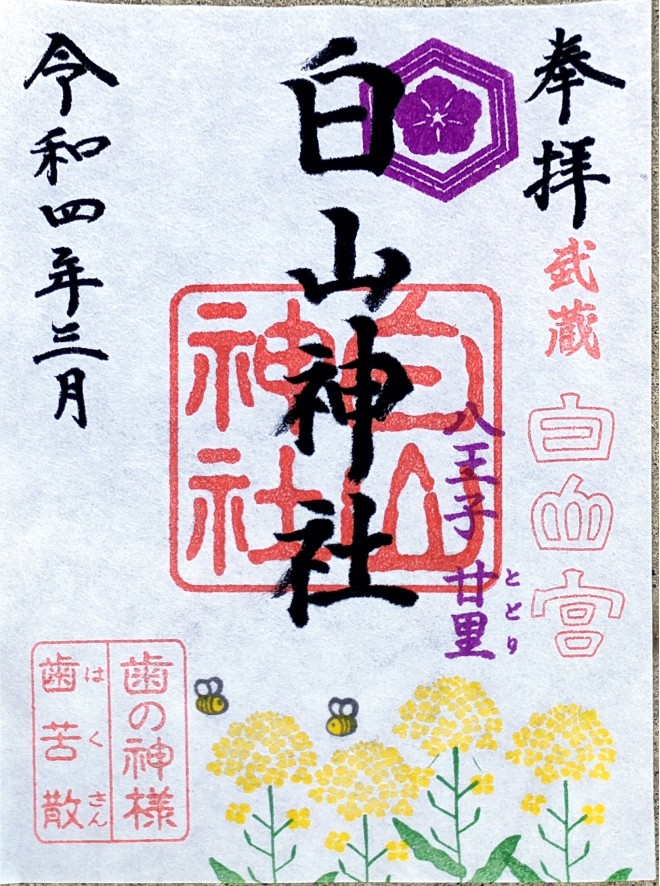 奉拝
武蔵
白山宮
八王子 廿里
とどり
白山神社
白山神社
令和四年三月
歯の神様
歯苦散
はくさん